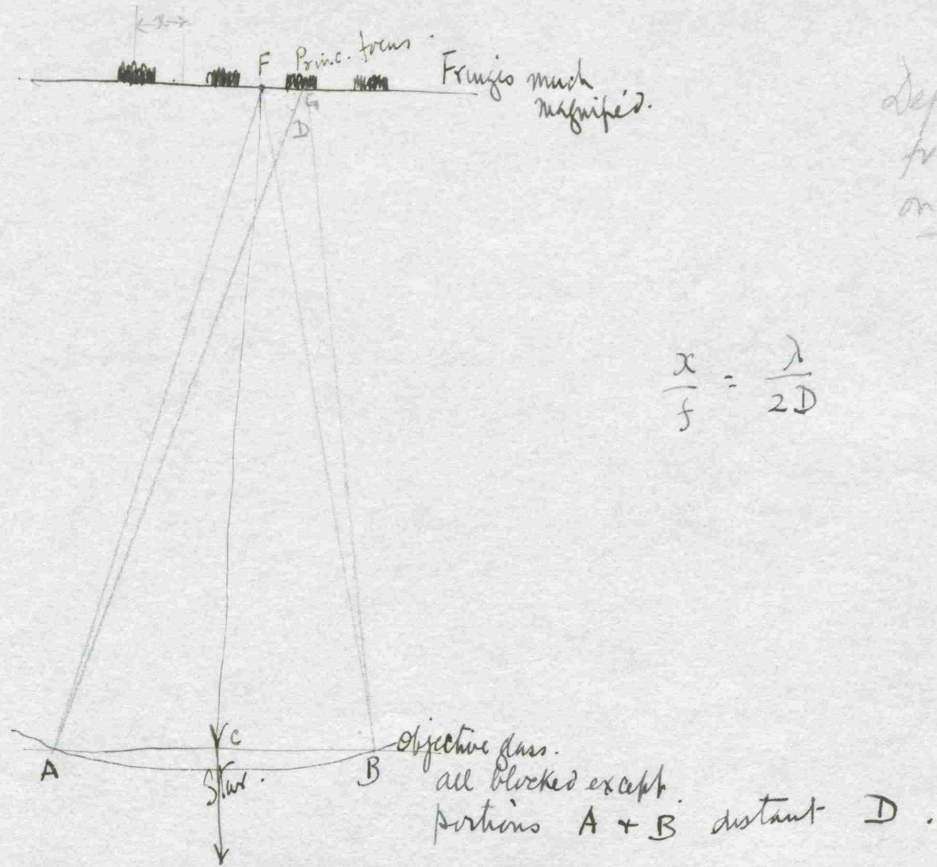 F Princ. focus.
Fringes much
magnified.
G
D
fr
on
x/f = λ/2D
A
C
B
Star.
Objective glass.
all blocked except
portions A + B distant D.